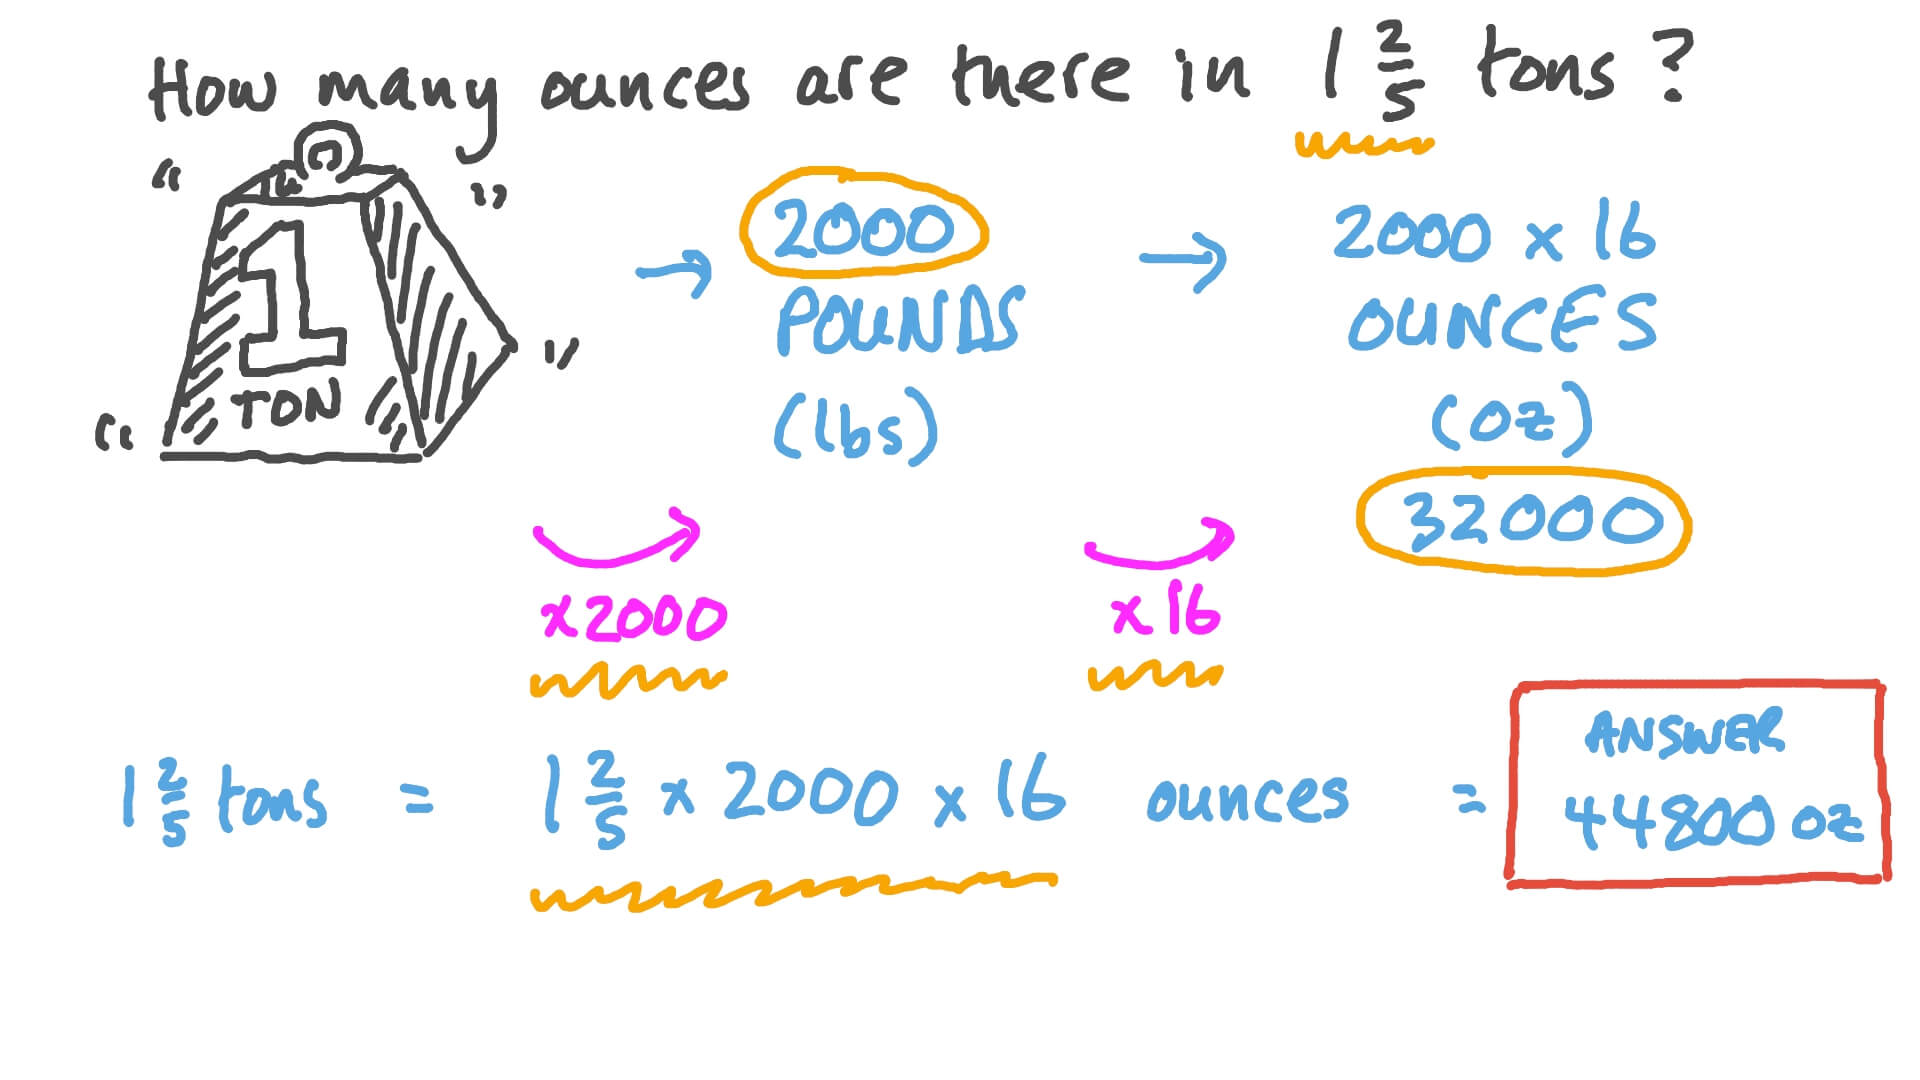 How many ounces are there in 1 2/5 tons?
1
TON
2000
POUNDS
(lbs)
2000 x 16
OUNCES
(oz)
32000
x2000
x16
1 2/5 tons = 1 2/5 x 2000 x 16 ounces =
ANSWER
44800 oz